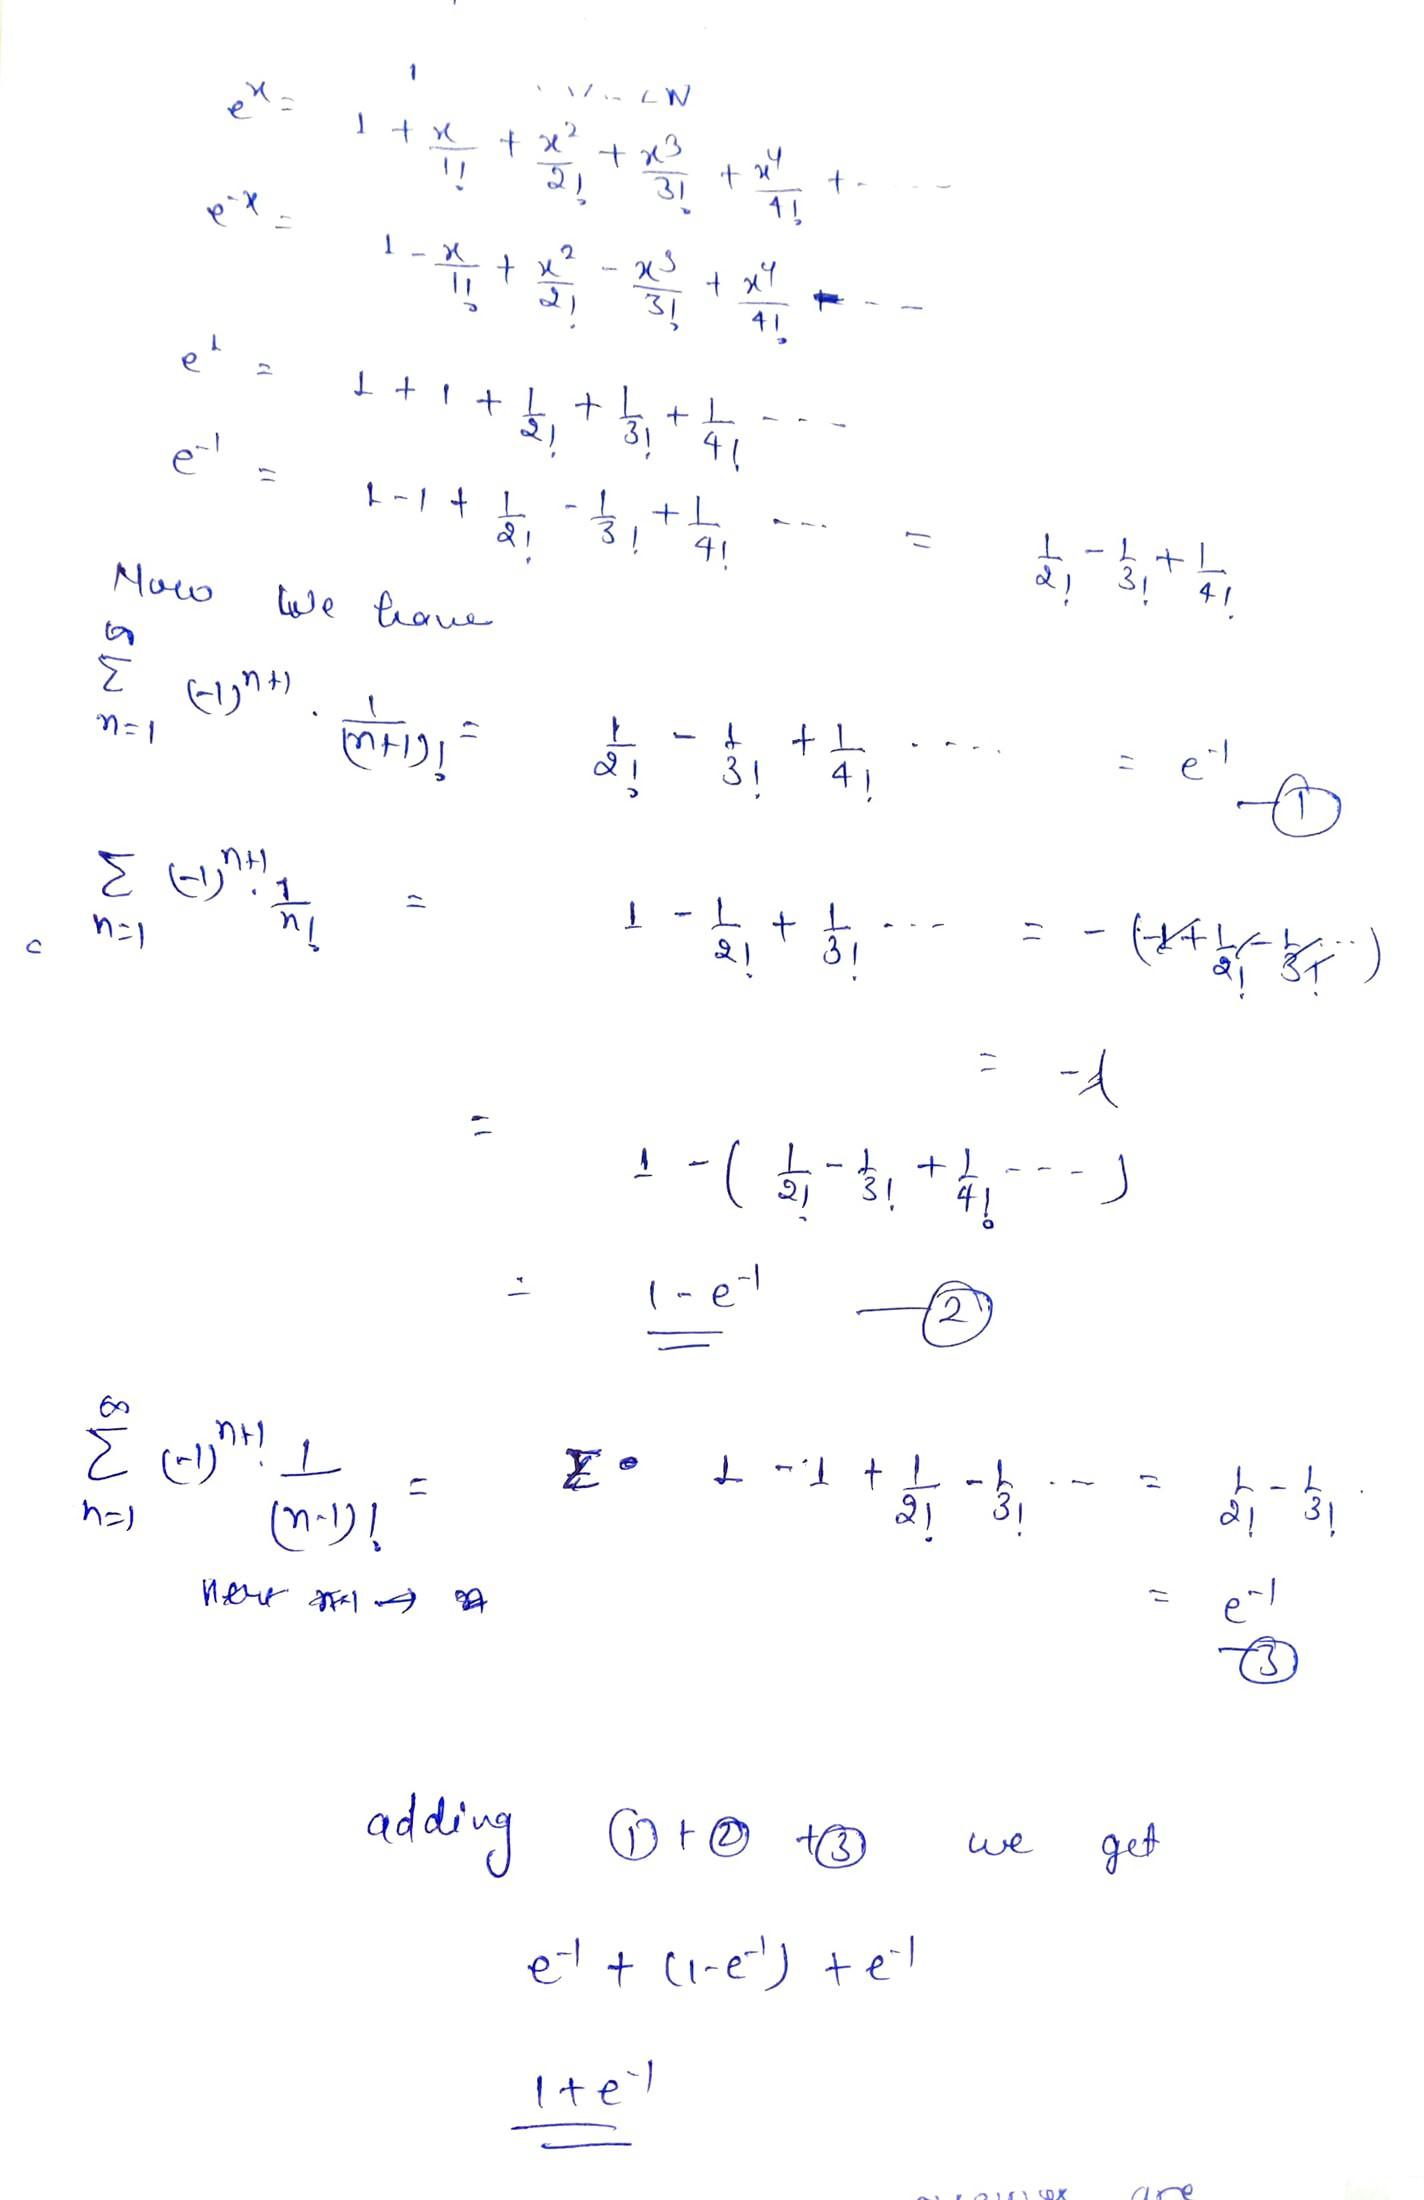 e^x = 1 + x/1! + x²/2! + x³/3! + x⁴/4! + - - - -
e^-x = 1 - x/1! + x²/2! - x³/3! + x⁴/4! - - -
e^1 = 1 + 1 + 1/2! + 1/3! + 1/4! - - -
e^-1 = 1 - 1 + 1/2! - 1/3! + 1/4! - - - = 1/2! - 1/3! + 1/4!
Now we have
∞ Σ n=1 (-1)^n+1 . 1/(n+1)! = 1/2! - 1/3! + 1/4! ..... = e^-1 —①
Σ n=1 (-1)^n+1 . 1/n! = 1 - 1/2! + 1/3! .... = - (-1 + 1/2! - 1/3! ...)
= -1
= 1 - ( 1/2! - 1/3! + 1/4! - - - )
= 1 - e^-1 —②
∞ Σ n=1 (-1)^n+1 . 1/(n-1)! = Σ 1 - 1 + 1/2! - 1/3! ... = 1/2! - 1/3!
n-1 → n = e^-1
—③
adding ① + ② + ③ we get
e^-1 + (1-e^-1) + e^-1
1 + e^-1
are